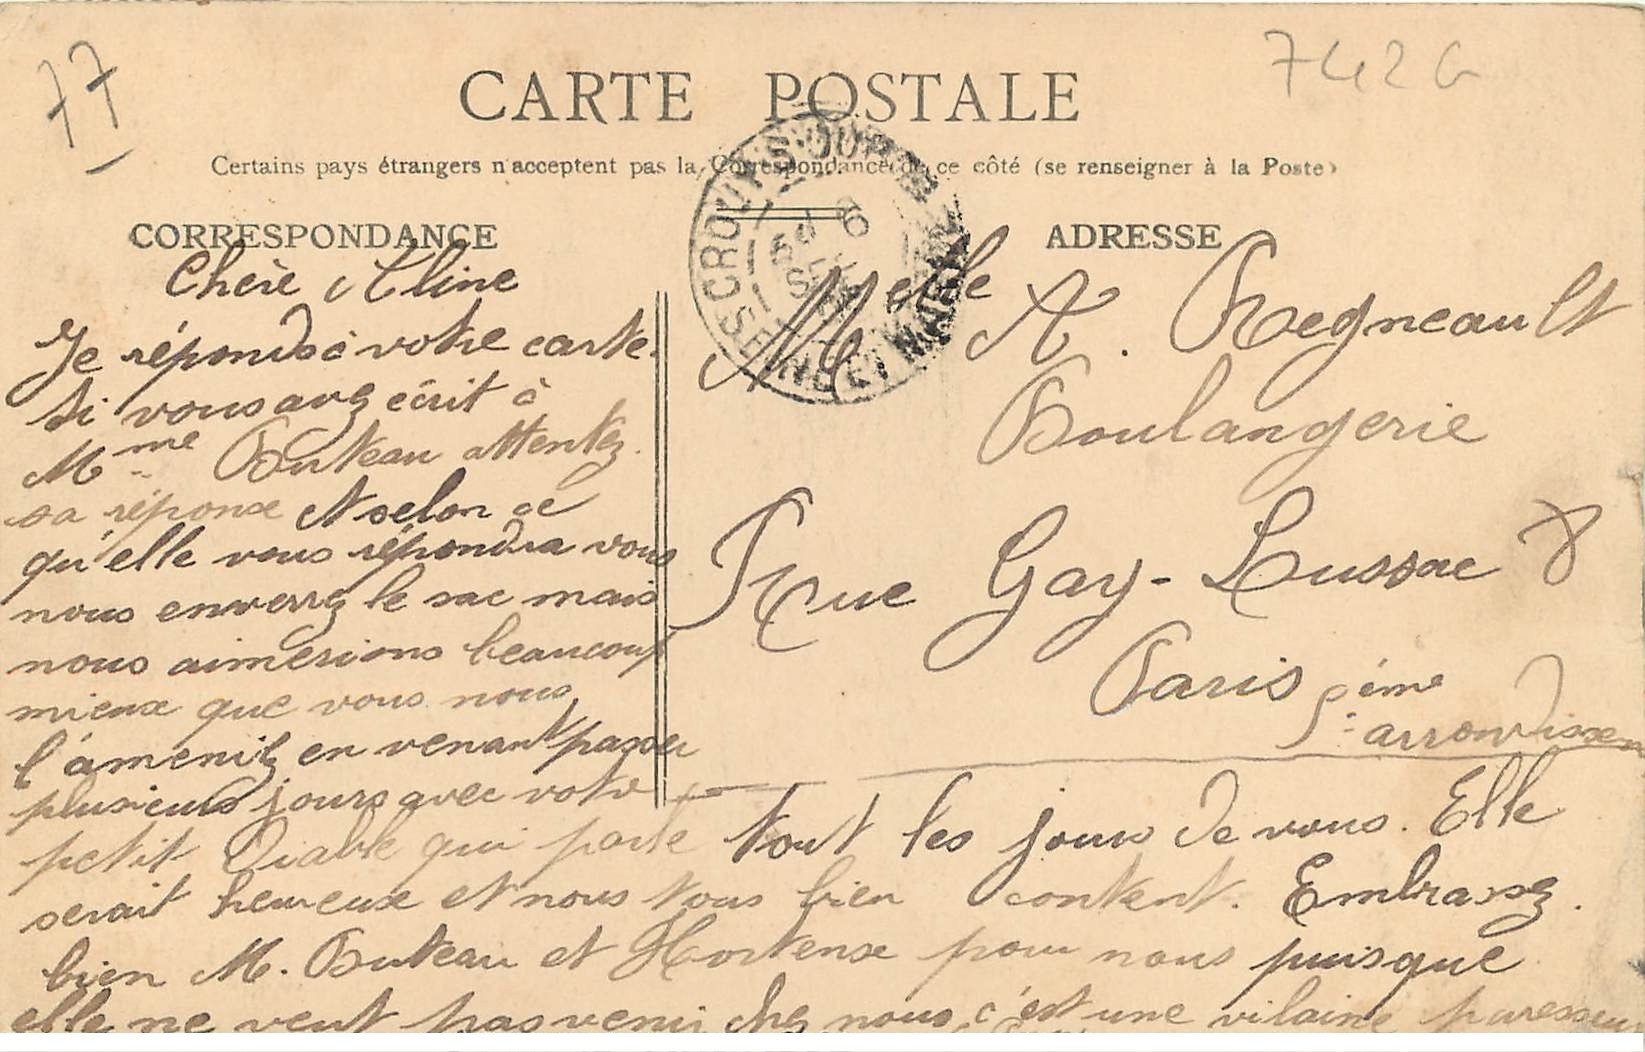 77
7426
CARTE POSTALE
Certains pays étrangers n'acceptent pas la Correspondance de ce côté (se renseigner à la Poste)
CROUY-S-OURCQ
SEINE ET MARNE
CORRESPONDANCE
Chère Aline
Je réponds à votre carte.
si vous avez écrit à
Mme Buteau attentez
sa réponse et selon ce
qu'elle vous répondra vous
nous enverrez le sac mais
nous aimerions beaucoup
mieux que vous nous
l'ámeniez en venant passer
plusieurs jours avec votre
petit Diable qui parle tout les jour de vous. Elle
serait heureuse et nous tous bien content. Embrassez.
bien M. Buteau et Hortense pour nous puisque
elle ne veut pas venir chez nous, c'est une vilaine paresseuse
ADRESSE
Melle A. Regneault
Boulangerie
Rue Gay-Lussac 8
Paris 5ème
arrondissem